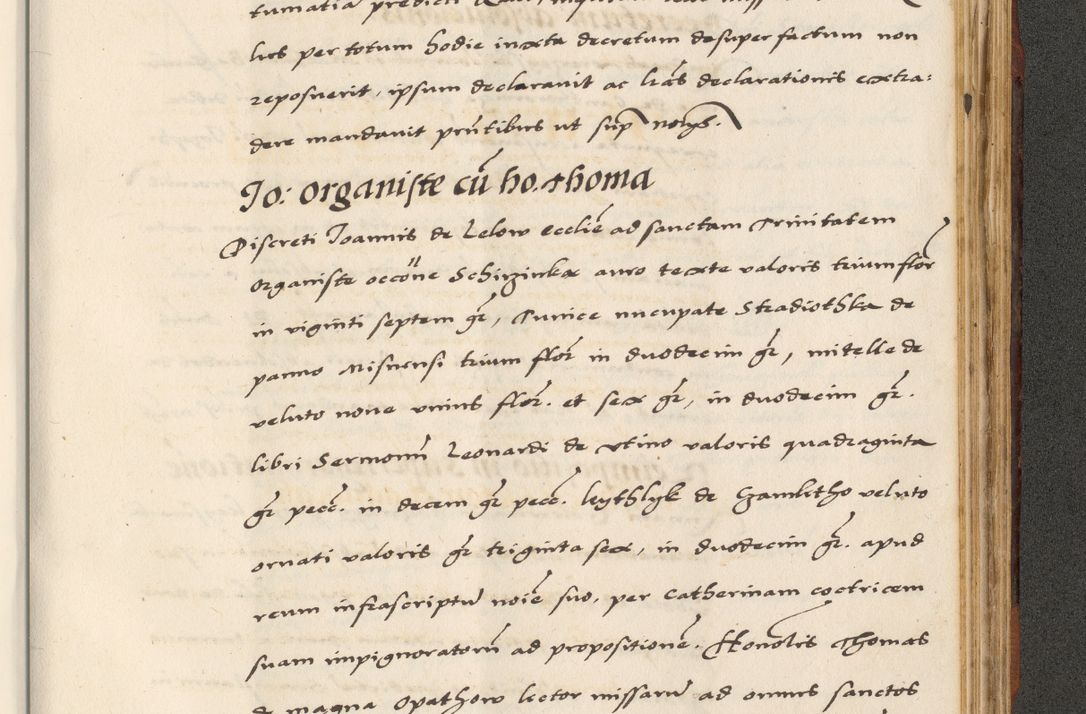 tumatia predicti
lics per totum hodie inxta decretum desuper factum non
reposuerit, ipsum declaravit ac lrãs declarationis extra:
dere mandavit pñtibus ut sup nõys.
Jo: organiste cũ ho. thoma
Discreti Joannis de Lelow ecclie ad sanctam Trinitatem
organiste occõne Schirzinkx auro texte valoris trium flor
in viginti septem gr, Tunice nucupate Stradiothka de
panno Misnensi trium flor in duodecim gr, mitelle de
veluto nove unius flor. et sex gr, in duodecim gr.
libri Sermonũ Leonardi de Utino valoris quadraginta
gr pecc. in decem gr pecc. leythlyk de Czamlitho veluto
ornati valoris gr triginta sex, in duodecim gr. apud
reum infrascriptu noie suo, per Catherinam coctricem
suam impignoratorũ ad propositione. Honolis Thomas
de magna Opathow lector missaru ad omnes sanctos